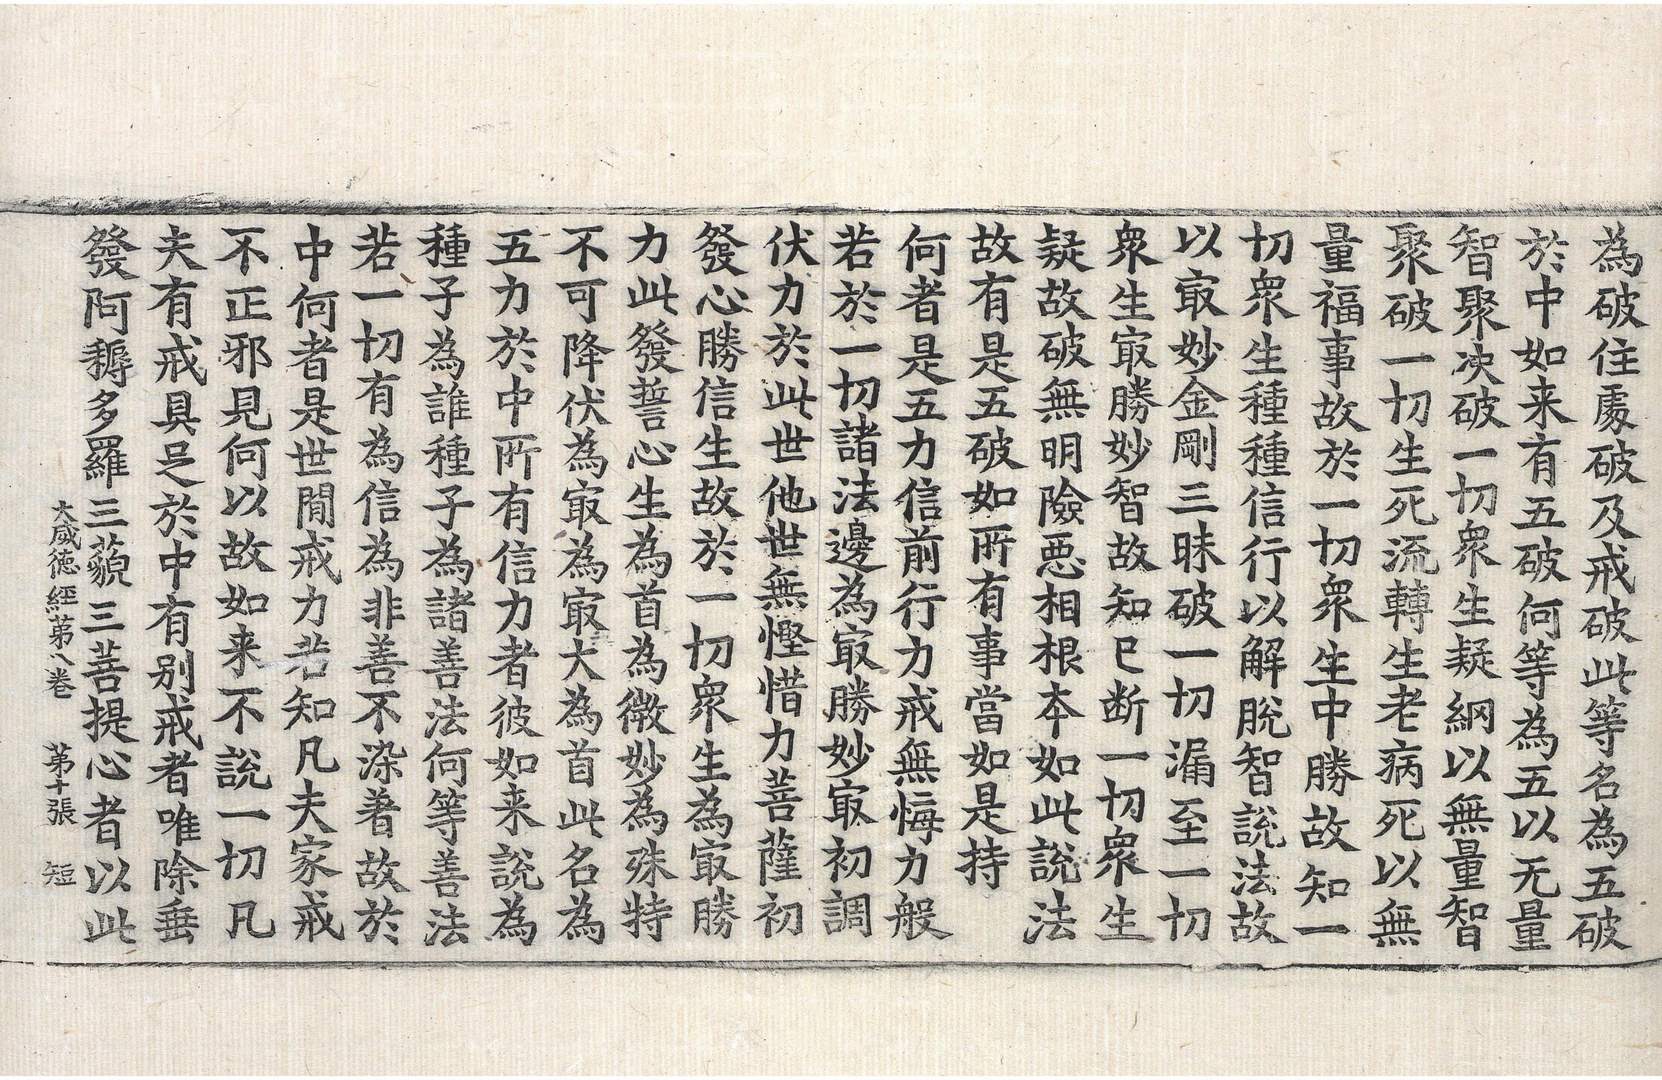 為破住處破及戒破此等名為五破
於中如来有五破何等為五以无量
智聚决破一切衆生疑網以無量智
聚破一切生死流轉生老病死以無
量福事故於一切衆生中勝故知一
切衆生種種信行以解脫智說法故
以㝡妙金剛三昧破一切漏至一切
衆生㝡勝妙智故知已断一切衆生
疑故破無明險惡相根本如此說法
故有是五破如所有事當如是持
何者是五力信前行力戒無悔力般
若於一切諸法邊為㝡勝妙㝡初調
伏力於此世他世無慳惜力菩薩初
發心勝信生故於一切衆生為㝡勝
力此發誓心生為首為微妙為殊特
不可降伏為㝡為㝡大為首此名為
五力於中所有信力者彼如来說為
種子為誰種子為諸善法何等善法
若一切有為信為非善不染著故於
中何者是世間戒力若知凡夫家戒
不正邪見何以故如来不說一切凡
夫有戒具足於中有别戒者唯除垂
發阿耨多羅三藐三菩提心者以此
大威德經第八卷 第十張 短